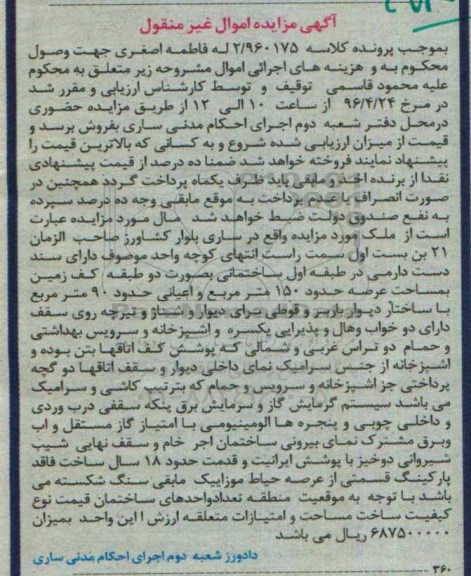 آگهی مزایده اموال غیر منقول
بموجب پرونده کلاسه ۲/۹۶۰۱۷۵ له فاطمه اصغری جهت وصول
محکوم به و هزینه های اجرائی اموال مشروحه زیر متعلق به محکوم
علیه محمود قاسمی توقیف و توسط کارشناس ارزیابی و مقرر شد
در مرخ ۹۶/۴/۲۴ از ساعت ۱۰ الی ۱۲ از طریق مزایده حضوری
درمحل دفتر شعبه دوم اجرای احکام مدنی ساری بفروش برسد و
قیمت از میزان ارزیابی شده شروع و به کسانی که بالاترین قیمت را
پیشنهاد نمایند فروخته خواهد شد ضمنا ده درصد از قیمت پیشنهادی
نقدا از برنده اخذ و مابقی باید ظرف یکماه پرداخت گردد همچنین در
صورت انصراف یا عدم پرداخت به موقع مابقی وجه ده درصد سپرده
به نفع صندوق دولت ضبط خواهد شد مال مورد مزایده عبارت
است از ملک مورد مزایده واقع در ساری بلوار کشاورز صاحب الزمان
۲۱ بن بست اول سمت راست انتهای کوچه واحد موصوف دارای سند
دست دارمی در طبقه اول ساختمانی بصورت دو طبقه کف زمین
بمساحت عرصه حدود ۱۵۰ متر مربع و اعیانی حدود ۹۰ متر مربع
با ساختار دیوار باربر و قوطی برای دیوار و شناژ و تیرچه روی سقف
دارای دو خواب وهال و پذیرایی یکسره و اشپزخانه و سرویس بهداشتی
و حمام دو تراس غربی و شمالی که پوشش کف اتاقها بتن بوده و
اشپزخانه از جنس سرامیک نمای داخلی دیوار و سقف اتاقها دو گچه
پرداختی جز اشپزخانه و سرویس و حمام که بترتیب کاشی و سرامیک
می باشد سیستم گرمایش گاز و سرمایش برق پنکه سقفی درب وردی
و داخلی چوبی و پنجره ها الومینیومی با امتیاز گاز مستقل و اب
وبرق مشترک نمای بیرونی ساختمان اجر خام و سقف نهایی شیب
شیروانی دوخیز با پوشش ایرانیت و قدمت حدود ۱۸ سال ساخت فاقد
پارکینگ قسمتی از عرصه حیاط موزاییک مابقی سنگ شکسته می
باشد با توجه به موقعیت منطقه تعدادواحدهای ساختمان قیمت نوع
کیفیت ساخت مساحت و امتیازات متعلقه ارزش ااین واحد بمیزان
۶۸۷۵۰۰۰۰۰ ریال می باشد
دادورز شعبه دوم اجرای احکام مدنی ساری
۳۶۰